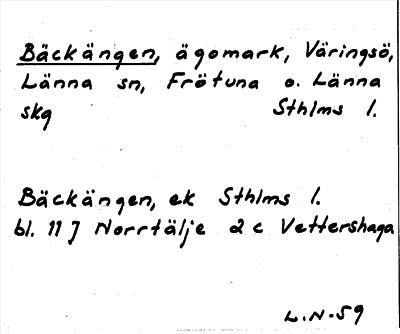 Bäckängen, ägomark, Väringsö,
Länna sn, Frötuna o. Länna
skg Sthlms l.
Bäckängen, ek Sthlms l.
bl. 11 J Norrtälje 2 c Vettershaga
L.N-59